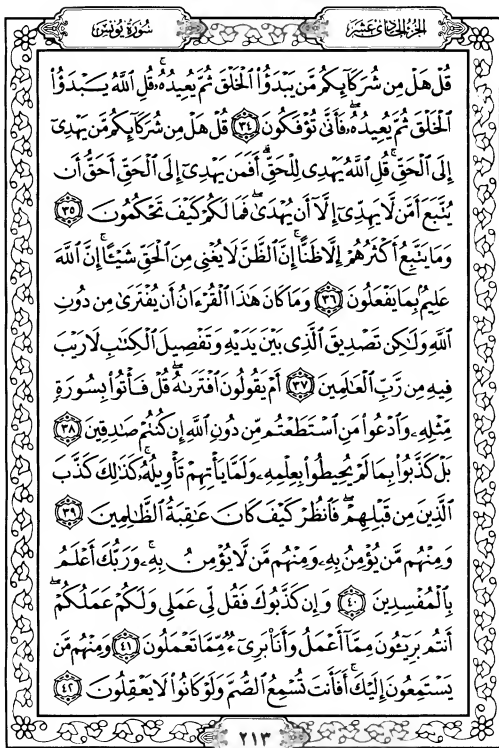 سُورَةُ يُونُسَ
الجُزْءُ الحَادِي عَشَرَ
قُلْ هَلْ مِن شُرَكَآئِكُم مَّن يَبْدَؤُاْ ٱلْخَلْقَ ثُمَّ يُعِيدُهُۥۚ قُلِ ٱللَّهُ يَبْدَؤُاْ
ٱلْخَلْقَ ثُمَّ يُعِيدُهُۥۖ فَأَنَّىٰ تُؤْفَكُونَ ٣٤ قُلْ هَلْ مِن شُرَكَآئِكُم مَّن يَهْدِىٓ
إِلَى ٱلْحَقِّۚ قُلِ ٱللَّهُ يَهْدِى لِلْحَقِّۗ أَفَمَن يَهْدِىٓ إِلَى ٱلْحَقِّ أَحَقُّ أَن
يُتَّبَعَ أَمَّن لَّا يَهِدِّىٓ إِلَّآ أَن يُهْدَىٰۖ فَمَا لَكُمْ كَيْفَ تَحْكُمُونَ ٣٥
وَمَا يَتَّبِعُ أَكْثَرُهُمْ إِلَّا ظَنًّاۚ إِنَّ ٱلظَّنَّ لَا يُغْنِى مِنَ ٱلْحَقِّ شَيْـًٔاۚ إِنَّ ٱللَّهَ
عَلِيمٌۢ بِمَا يَفْعَلُونَ ٣٦ وَمَا كَانَ هَٰذَا ٱلْقُرْءَانُ أَن يُفْتَرَىٰ مِن دُونِ
ٱللَّهِ وَلَٰكِن تَصْدِيقَ ٱلَّذِى بَيْنَ يَدَيْهِ وَتَفْصِيلَ ٱلْكِتَٰبِ لَا رَيْبَ
فِيهِ مِن رَّبِّ ٱلْعَٰلَمِينَ ٣٧ أَمْ يَقُولُونَ ٱفْتَرَىٰهُۖ قُلْ فَأْتُواْ بِسُورَةٍ
مِّثْلِهِۦ وَٱدْعُواْ مَنِ ٱسْتَطَعْتُم مِّن دُونِ ٱللَّهِ إِن كُنتُمْ صَٰدِقِينَ ٣٨
بَلْ كَذَّبُواْ بِمَا لَمْ يُحِيطُواْ بِعِلْمِهِۦ وَلَمَّا يَأْتِهِمْ تَأْوِيلُهُۥۚ كَذَٰلِكَ كَذَّبَ
ٱلَّذِينَ مِن قَبْلِهِمْۖ فَٱنظُرْ كَيْفَ كَانَ عَٰقِبَةُ ٱلظَّٰلِمِينَ ٣٩
وَمِنْهُم مَّن يُؤْمِنُ بِهِۦ وَمِنْهُم مَّن لَّا يُؤْمِنُ بِهِۦۚ وَرَبُّكَ أَعْلَمُ
بِٱلْمُفْسِدِينَ ٤٠ وَإِن كَذَّبُوكَ فَقُل لِّى عَمَلِى وَلَكُمْ عَمَلُكُمْۖ
أَنتُم بَرِيٓـُٔونَ مِمَّآ أَعْمَلُ وَأَنَا۠ بَرِىٓءٌ مِّمَّا تَعْمَلُونَ ٤١ وَمِنْهُم مَّن
يَسْتَمِعُونَ إِلَيْكَۚ أَفَأَنتَ تُسْمِعُ ٱلصُّمَّ وَلَوْ كَانُواْ لَا يَعْقِلُونَ ٤٢
٢١٣